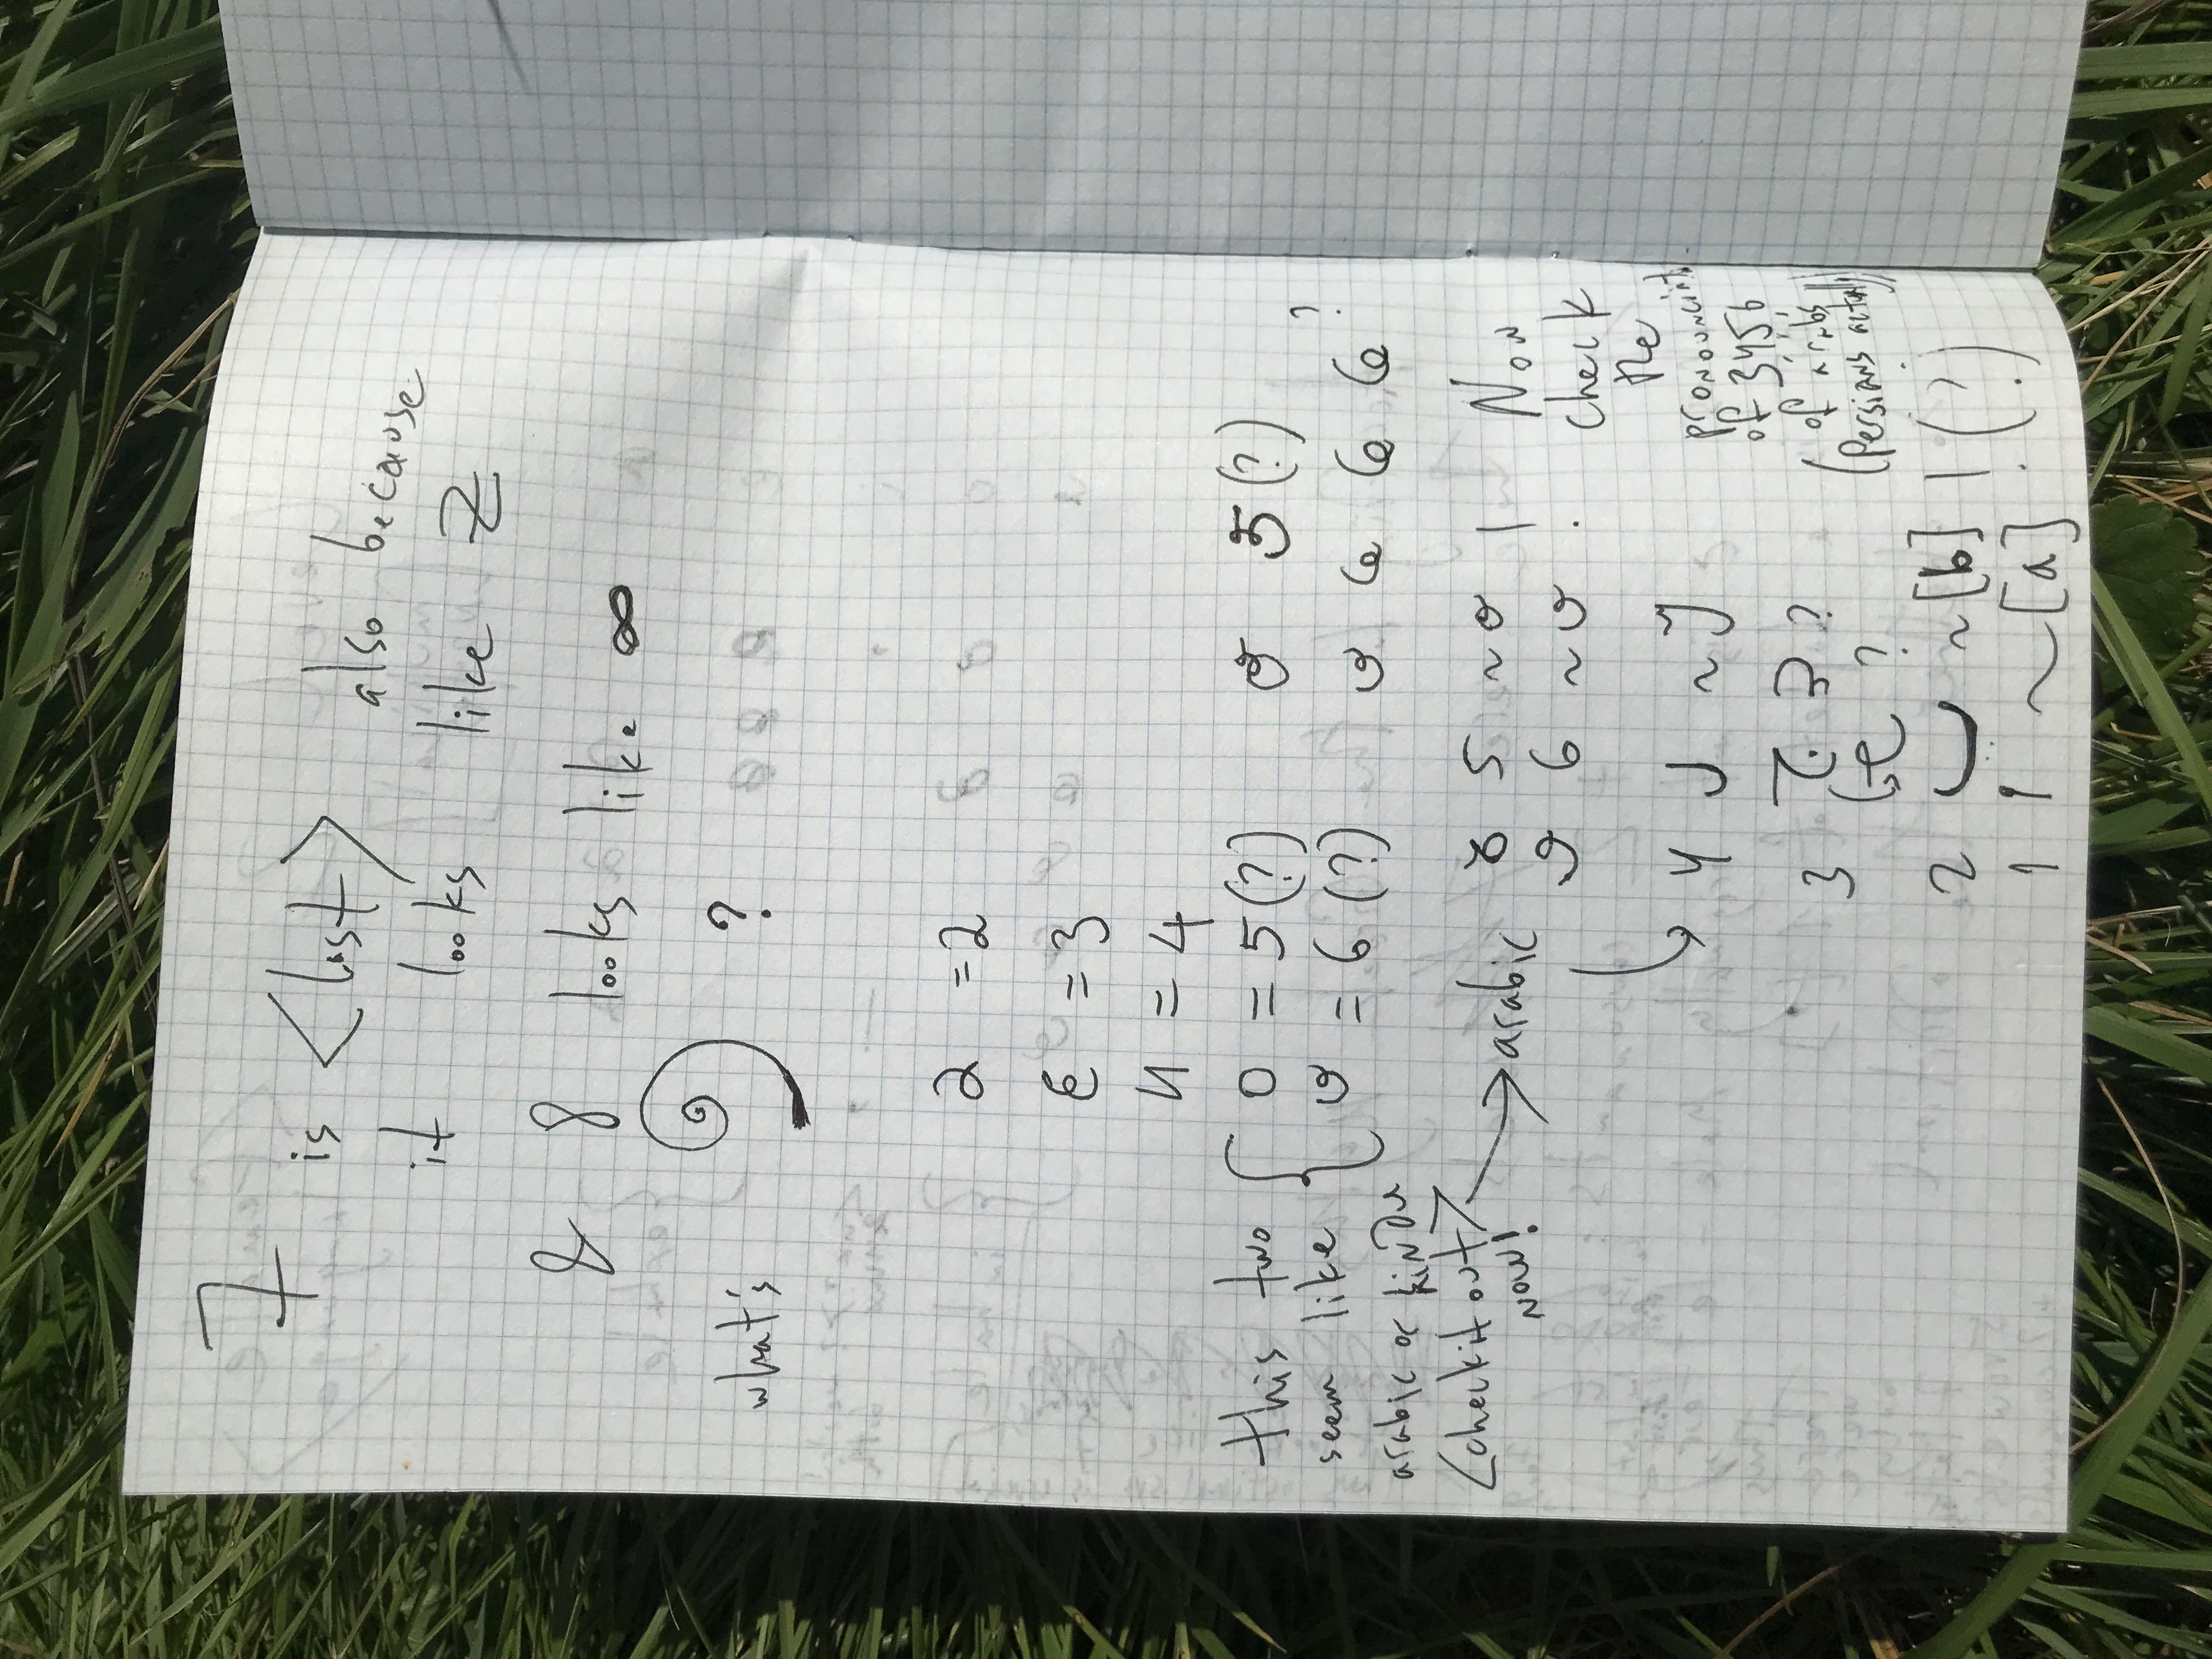 7 is <last> also because
it looks like Z
& 8 looks like ∞
what's 9 ?
a = 2
є = 3
и = 4
this two seem like arabic or hindu
<check it out> now!
o = 5 (?) 5 (?)
= 6 (?) 6 6 6 ?
→ arabic 5 ~ !
6 ~
4 J ~ У
3 ?
?
2 ~ [b] ! (?)
1 ا ~ [a]
Now
check
the
of 3456
of arabs
(Persians actually)